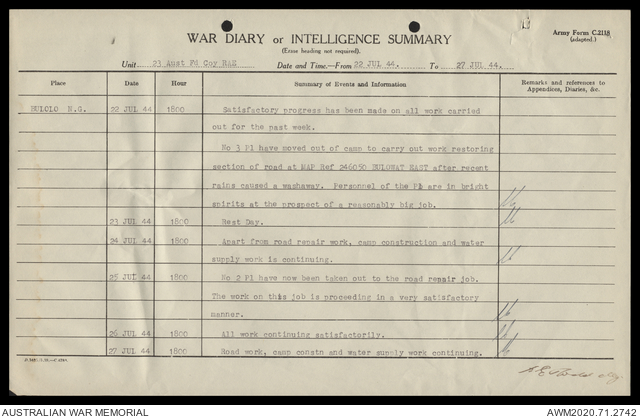 WAR DIARY or INTELLIGENCE SUMMARY
(Erase heading not required).
Army Form C.2118
(adapted.)
Unit 23 Aust Fd Coy RAE Date and Time.—From 22 JUL 44. To 27 JUL 44.
Place Date Hour Summary of Events and Information Remarks and references to
Appendices, Diaries, &c.
BULOLO N.G. 22 JUL 44 1800 Satisfactory progress has been made on all work carried
out for the past week.
No 3 Pl have moved out of camp to carry out work restoring
section of road at MAP Ref 246050 BULOWAT EAST after recent
rains caused a washaway. Personnel of the Pl are in bright
spirits at the prospect of a reasonably big job.
23 JUL 44 1800 Rest Day.
24 JUL 44 1800 Apart from road repair work, camp construction and water
supply work is continuing.
25 JUL 44 1800 No 2 Pl have now been taken out to the road repair job.
The work on this job is proceeding in a very satisfactory
manner.
26 JUL 44 1800 All work continuing satisfactorily.
27 JUL 44 1800 Road work, camp constn and water supply work continuing.
AUSTRALIAN WAR MEMORIAL AWM2020.71.2742